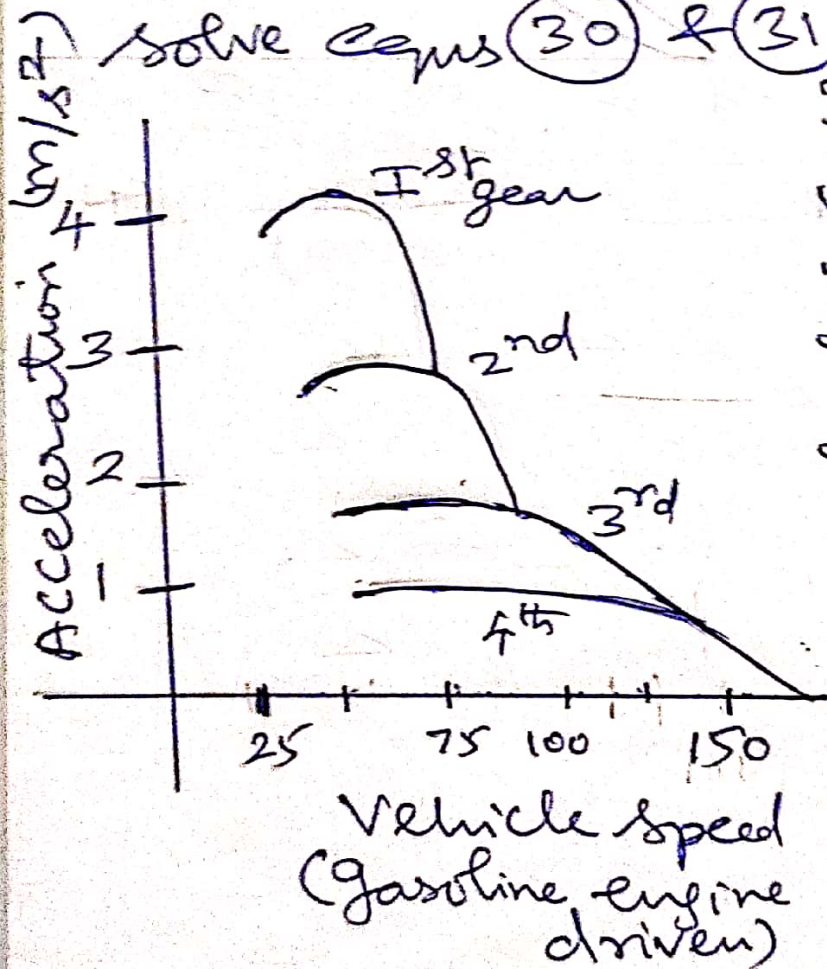 solve eqns (30) & (31
Acceleration (m/s²)
4
3
2
1
Ist gear
2nd
3rd
4th
25 75 100 150
Vehicle speed
(gasoline engine
driven)